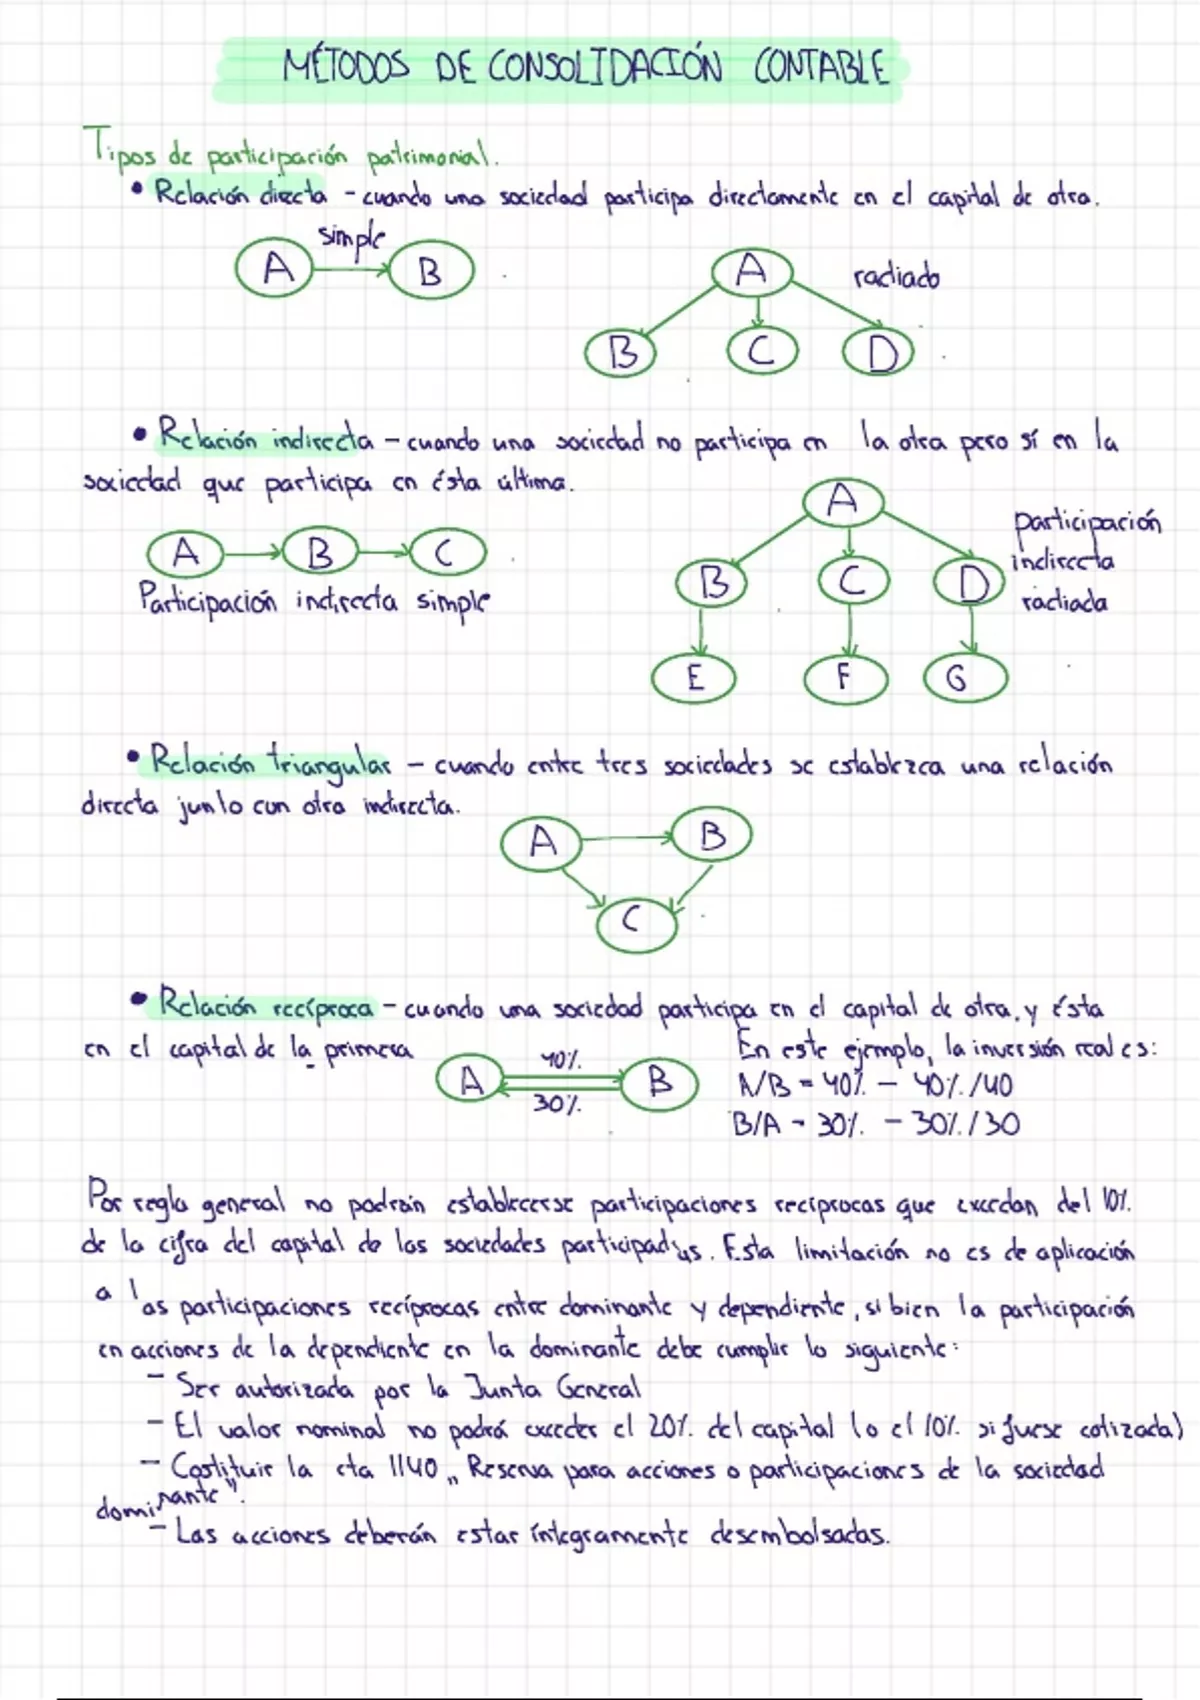 MÉTODOS DE CONSOLIDACIÓN CONTABLE
Tipos de participación patrimonial.
• Relación directa - cuando una sociedad participa directamente en el capital de otra.
simple
A B
A radiado
B C D
• Relación indirecta - cuando una sociedad no participa en la otra pero sí en la
sociedad que participa en ésta última.
A B C
Participación indirecta simple
A
B C D
E F G
participación
indirecta
radiada
• Relación triangular - cuando entre tres sociedades se establezca una relación
directa junto con otra indirecta.
A B
C
• Relación recíproca - cuando una sociedad participa en el capital de otra, y ésta
en el capital de la primera
A 40% B
30%
En este ejemplo, la inversión real es:
A/B = 40% - 40%/40
B/A - 30% - 30%/30
Por regla general no podrán establecerse participaciones recíprocas que excedan del 10%
de la cifra del capital de las sociedades participadas. Esta limitación no es de aplicación
a las participaciones recíprocas entre dominante y dependiente, si bien la participación
en acciones de la dependiente en la dominante debe cumplir lo siguiente:
- Ser autorizada por la Junta General
- El valor nominal no podrá exceder el 20% del capital (o el 10% si fuese cotizada)
- Costituir la cta 1140 "Reserva para acciones o participaciones de la sociedad
dominante".
- Las acciones deberán estar íntegramente desembolsadas.